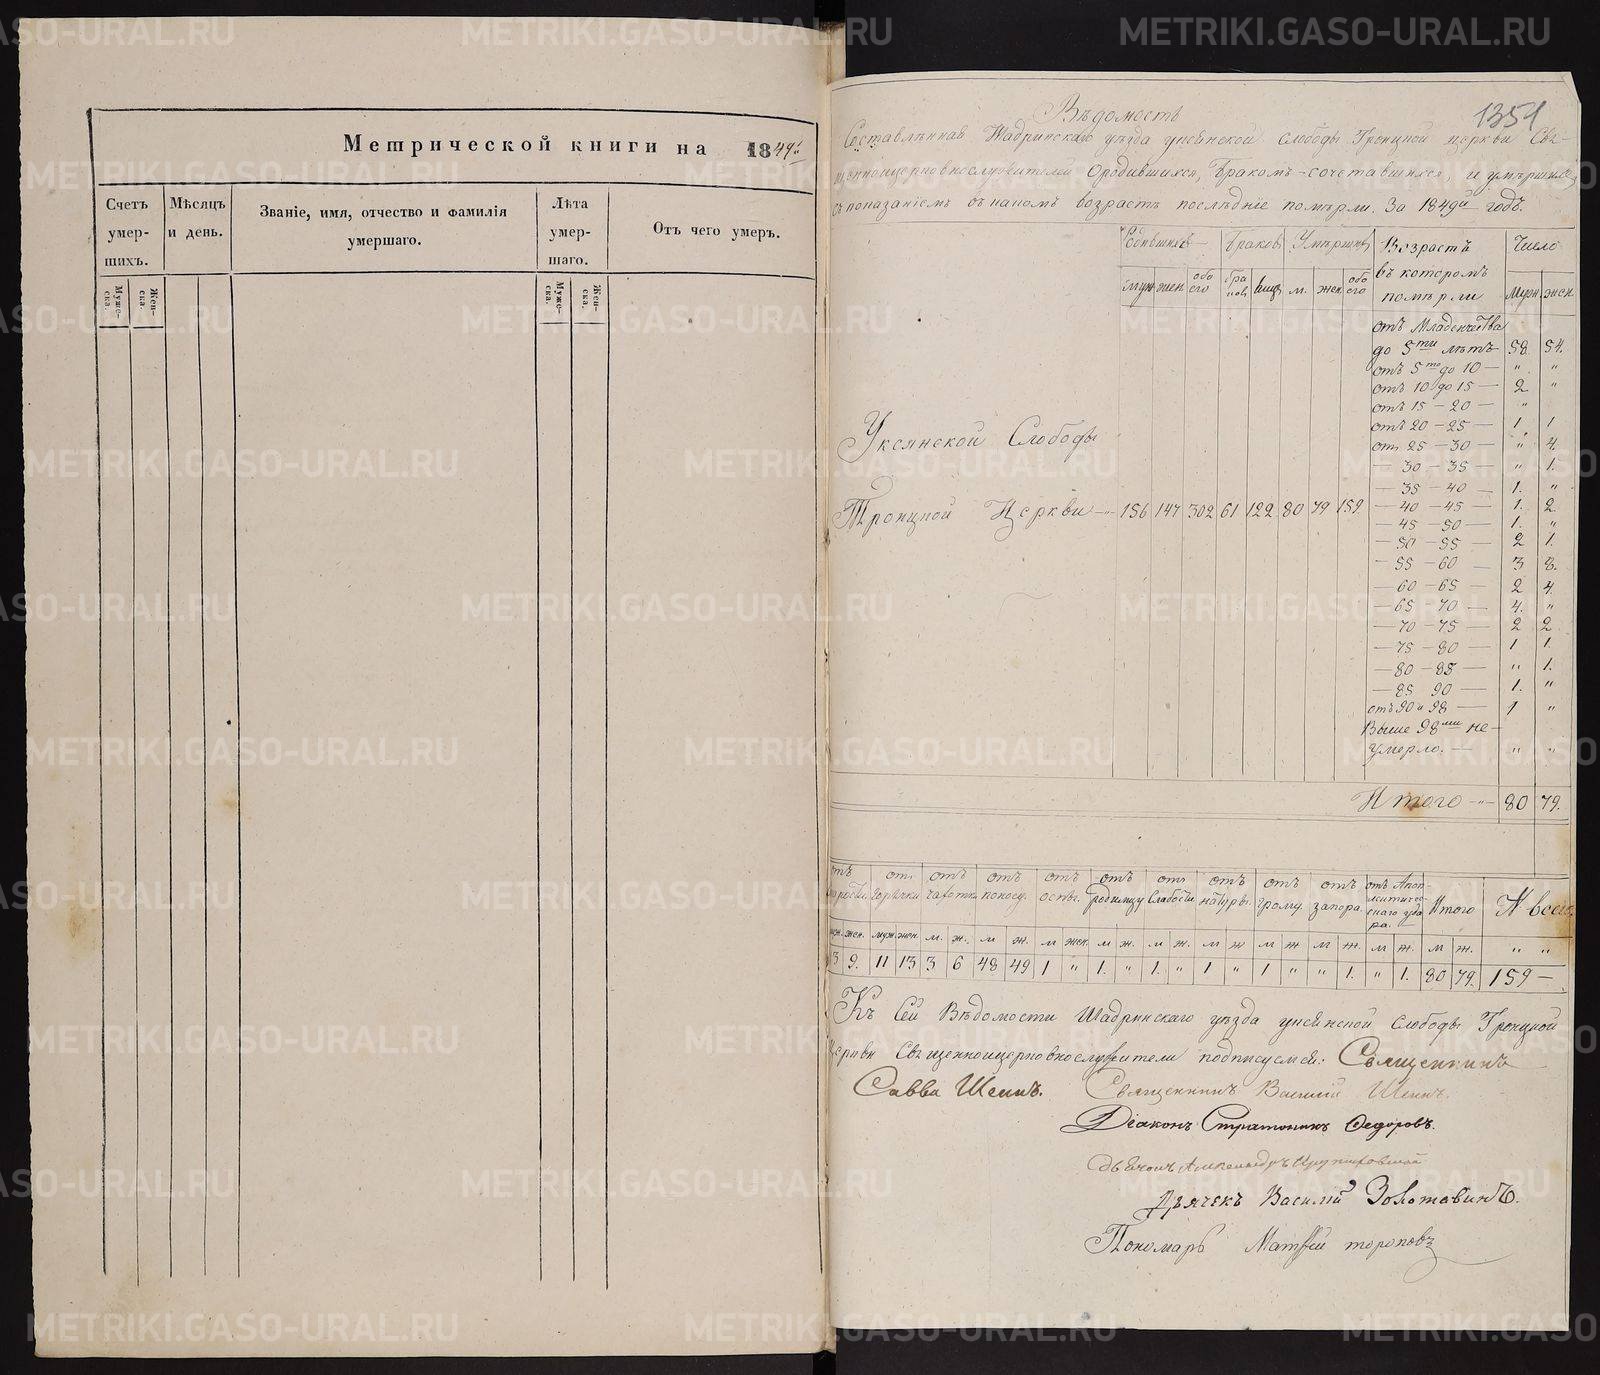 Метрической книги на 1849й
Счетъ умер- шихъ.
Мѣсяцъ и день.
Званіе, имя, отчество и фамилія умершаго.
Лѣта умер- шаго.
Отъ чего умеръ.
Муже- ска.
Жен- ска.
Муже- ска.
Жен- ска.
1351
Вѣдомость
Составлѣнная Шадринскаго уѣзда уксянской слободы Троицкой церкви Свя-
щенноцерковнослужителями Ородившихся, Бракомъ-сочетавшихся, и умершихъ,
съ показаніемъ въ какомъ возрастѣ послѣдніе помѣрли. За 1849й годъ.
Родившихся Браковъ Умѣршихъ Возрастъ въ которомъ помѣрли Число
муж. жен. обо его бра ковъ лицъ м. жен. обо его Муж. жен.
отъ Младенчества
до 5ти лѣтъ 58. 54.
отъ 5ти до 10 — " "
отъ 10 до 15 — 2 "
отъ 15 — 20 — "
отъ 20 — 25 — 1 1
отъ 25 — 30 — " 4.
— 30 — 35 — " 1.
— 35 — 40 — 1. "
— 40 — 45 — 1. 2.
— 45 — 50 — 1. "
— 50 — 55 — 2 1.
— 55 — 60 — 3 8.
— 60 — 65 — 2 4.
— 65 — 70 — 4. "
— 70 — 75 — 2 2
— 75 — 80 — 1 1.
— 80 — 85 — " 1.
— 85 90 — 1. "
отъ 90 и 98 — 1 "
Выше 98ми не —
умерло. — " "
Уксянской Слободы
Троицкой Церкви — 156 147 302 61 122 80 79 159.
Итого — 80 79.
отъ горячки отъ чахотки отъ поносу. отъ оспы. отъ родимцу отъ Слабости отъ натуры. отъ грому. отъ запора. отъ Апоп- Итого И всего
жен. муж. жен. м. ж. м ж. м жен. м ж. м ж. м ж м ж м ж. м ж. м ж. " "
3 9. 11 13 3 6 48 49 1 " 1. " 1. " 1 " 1 " " 1. " 1. 80 79. 159 —
Къ Сей Вѣдомости Шадринскаго уѣзда уксянской слободы Троицкой
церкви Священноцерковнослужители подписуемся: Священникъ
Савва Шеинъ. Священникъ Василій Шеинъ.
Діаконъ Стратоникъ Федоровъ.
Дьячекъ Василій Золотавинъ.
Пономарь Матфей тороповъ
METRIKI.GASO-URAL.RU